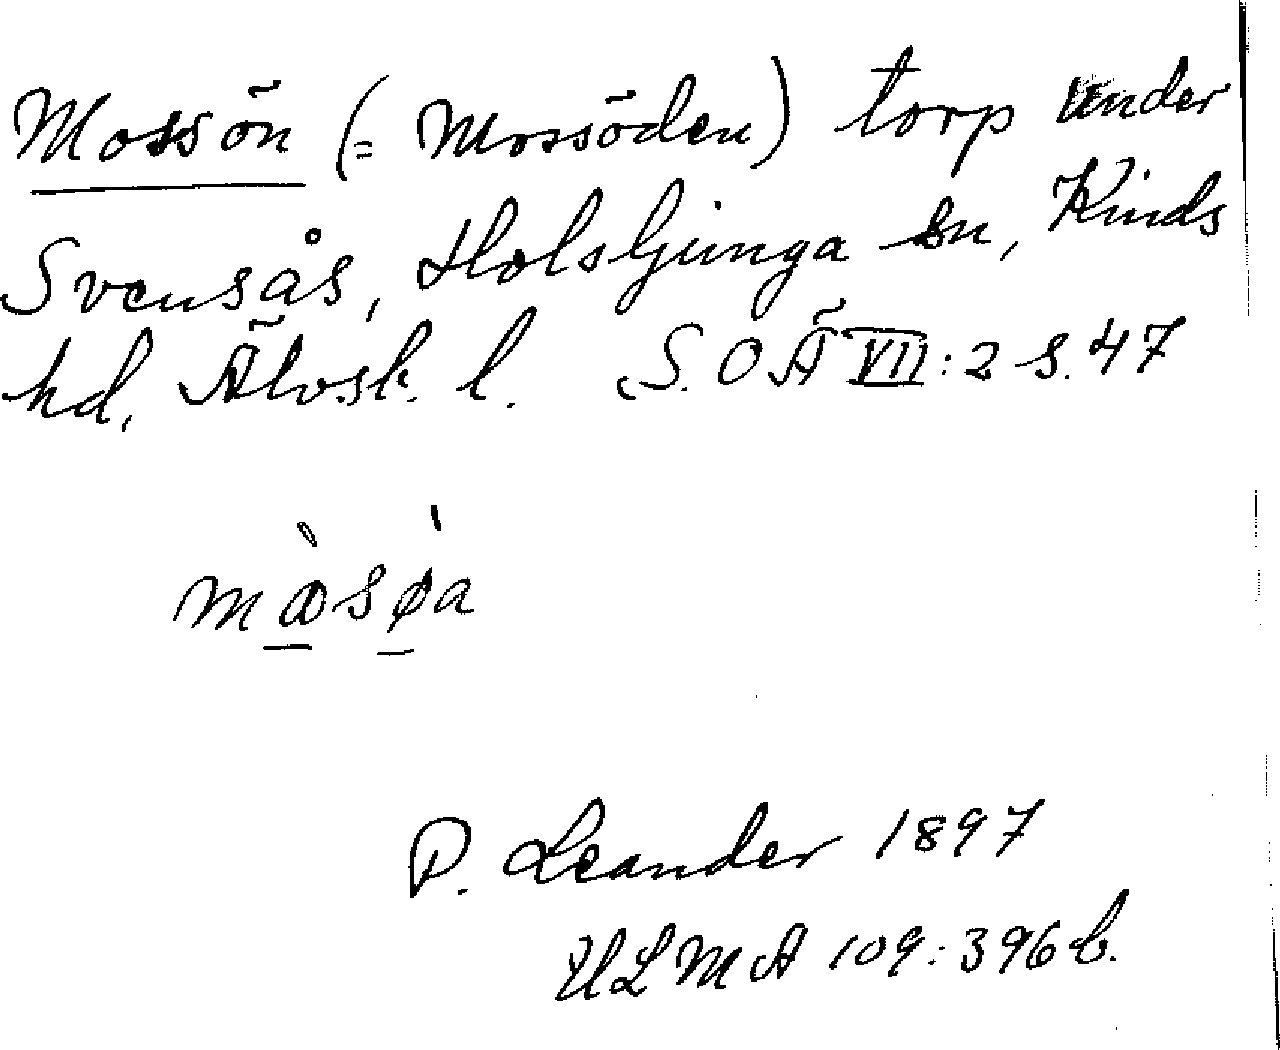 Mossön (= Mossöden) torp under
Svensås, Holsljunga sn, Kinds
hd, Älvsb. l. S.O.Ä VII:2 s. 47
P. Leander 1897
ULMA 109:396 b.